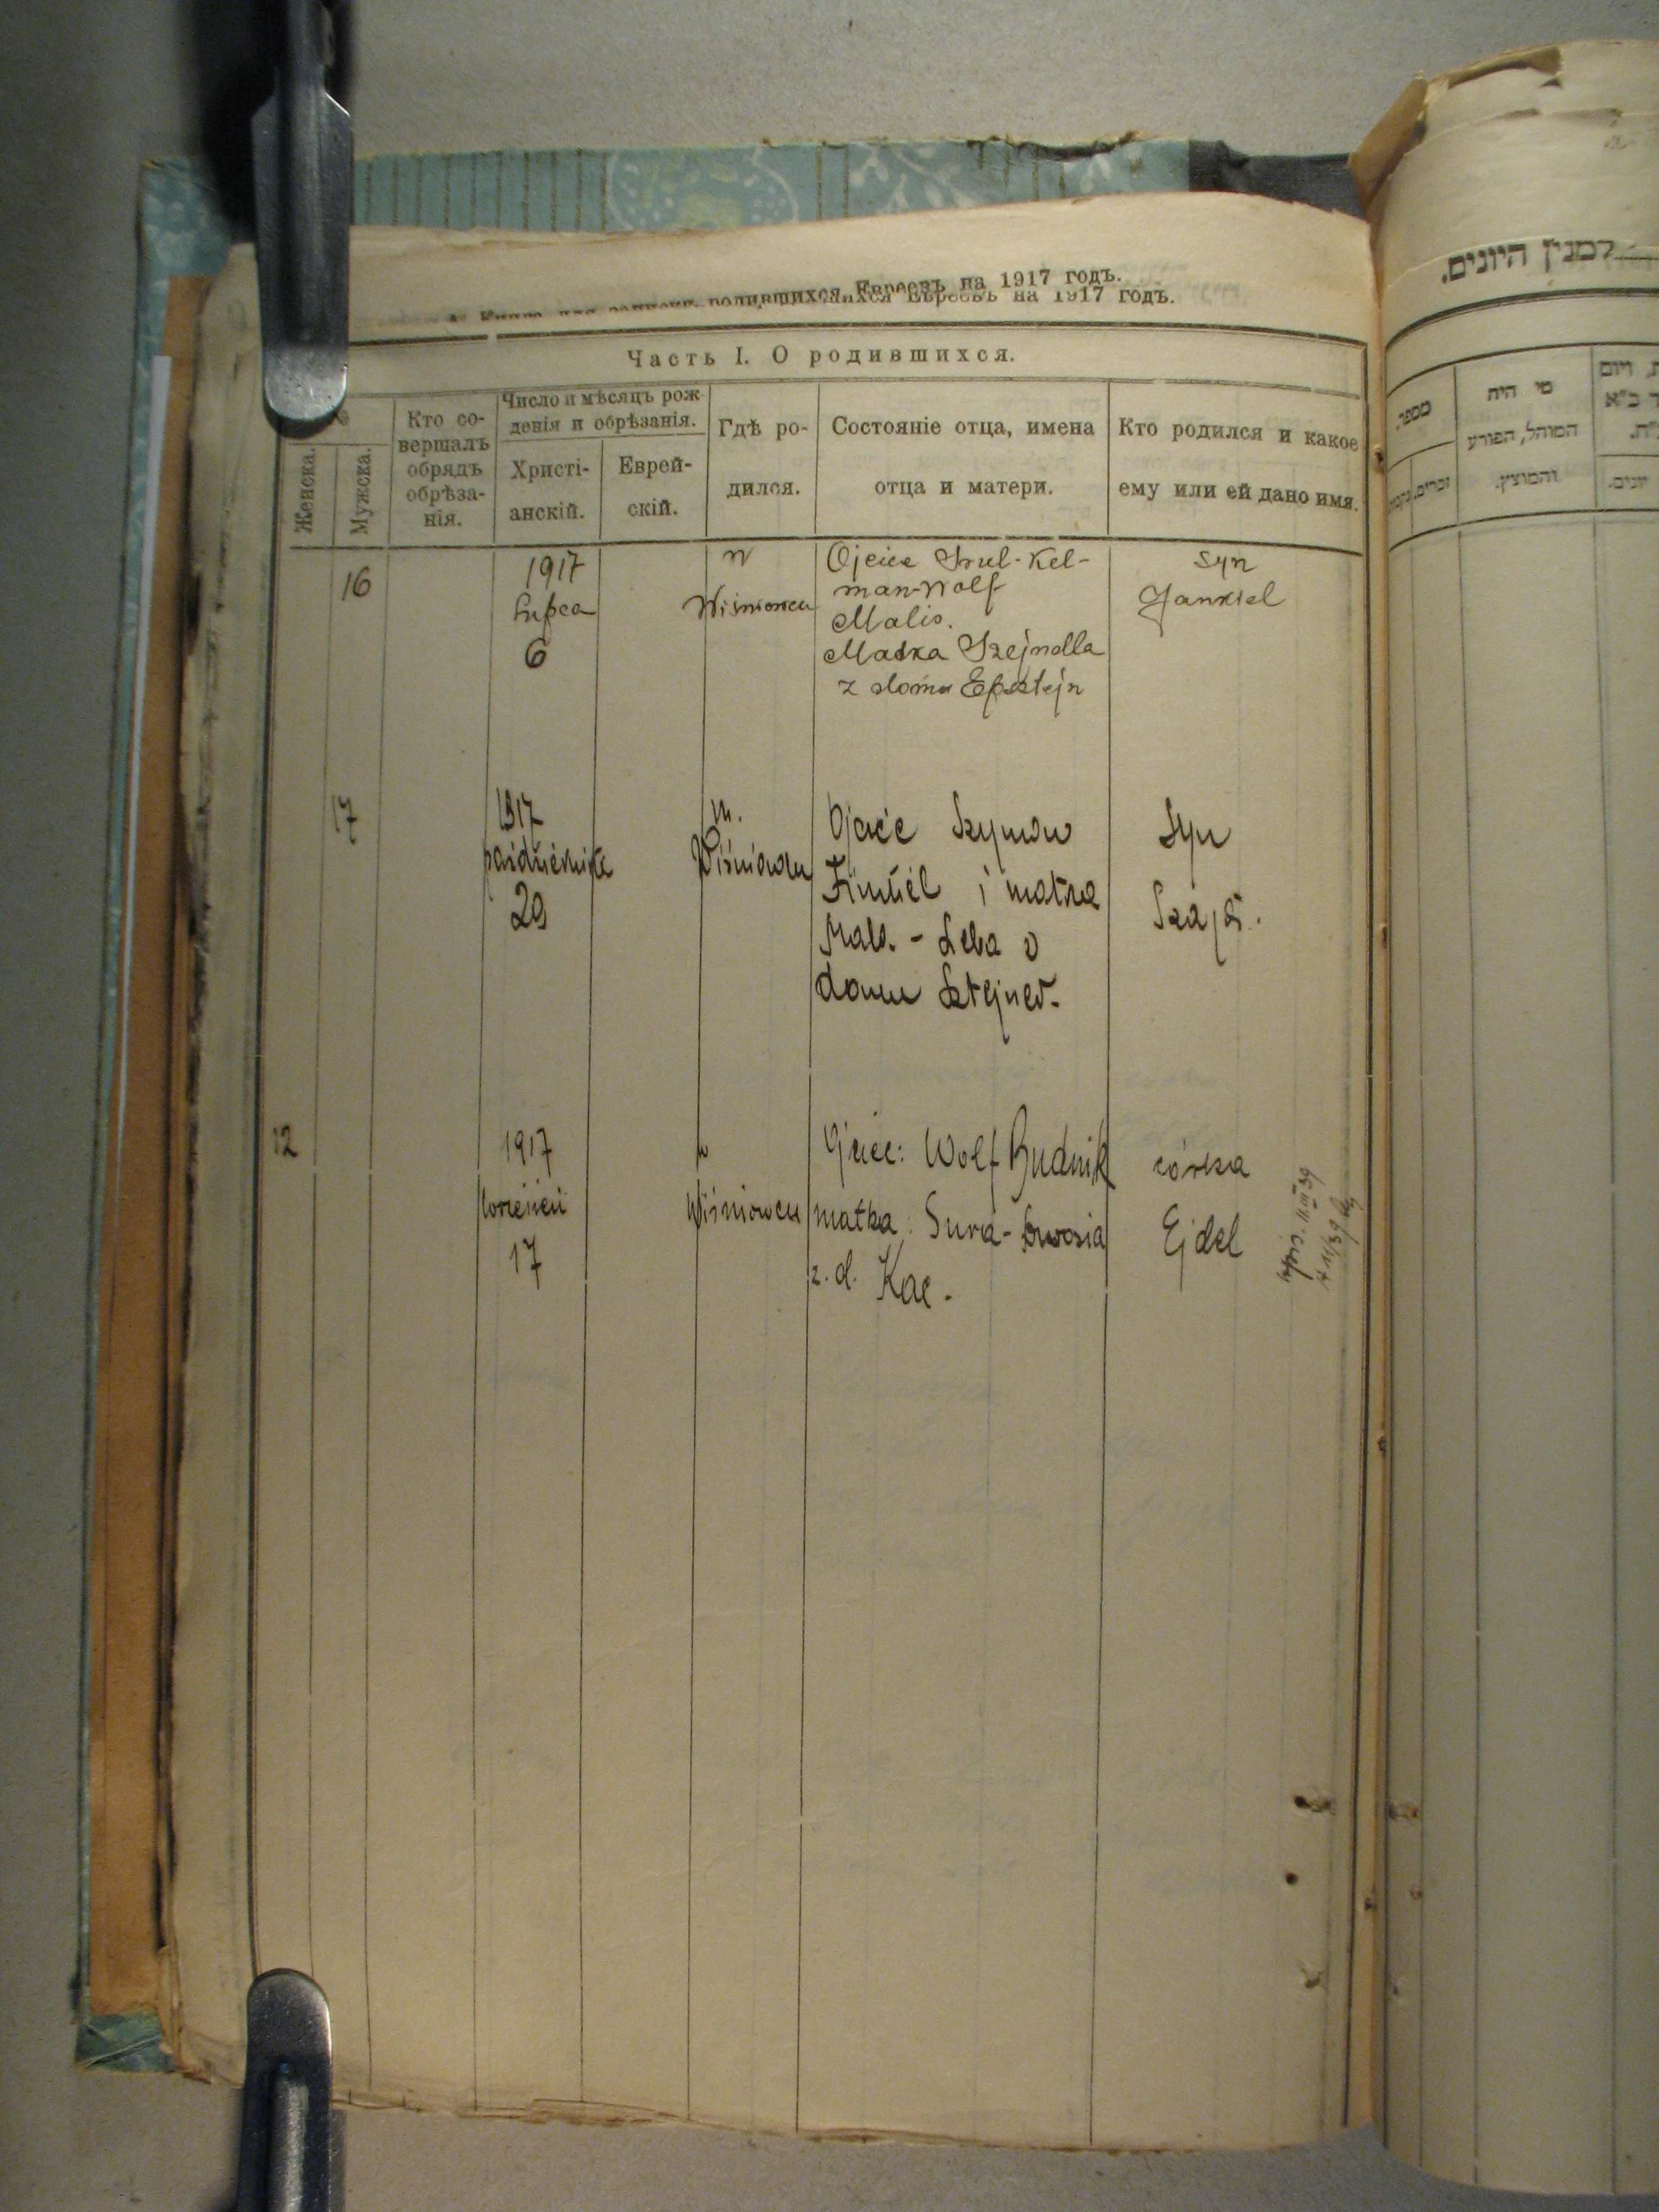 родившихся Евреевъ на 1917 годъ.
на 1917 годъ.
Часть I. О родившихся.
Женска.
Мужска.
Кто со-
вершалъ
обрядъ
обрѣза-
нія.
Число и мѣсяцъ рож-
денія и обрѣзанія.
Христі-
анскій.
Еврей-
скій.
Гдѣ ро-
дился.
Состояніе отца, имена
отца и матери.
Кто родился и какое
ему или ей дано имя.
16
1917
Lipca
6
w
Wiśniowcu
Ojciec Srul-Kel-
man-Wolf
Malis.
Matka Szejndla
z domu Epsztejn
syn
Jankiel
17
1917
październik
29
w.
Wiśniowcu
Ojciec Szymon
i matka
domu Sztejner.
Syn
Szaja.
12
1917
wrzesień
17
w
Wiśniowcu
Ojciec: Wolf Budnik
matka: Sura-
z. d. Kac.
córka
Ejdel
למנין היונים.
מספר
זכרים
מי היה
המוהל, הפורע
והמוצץ.
יונים.